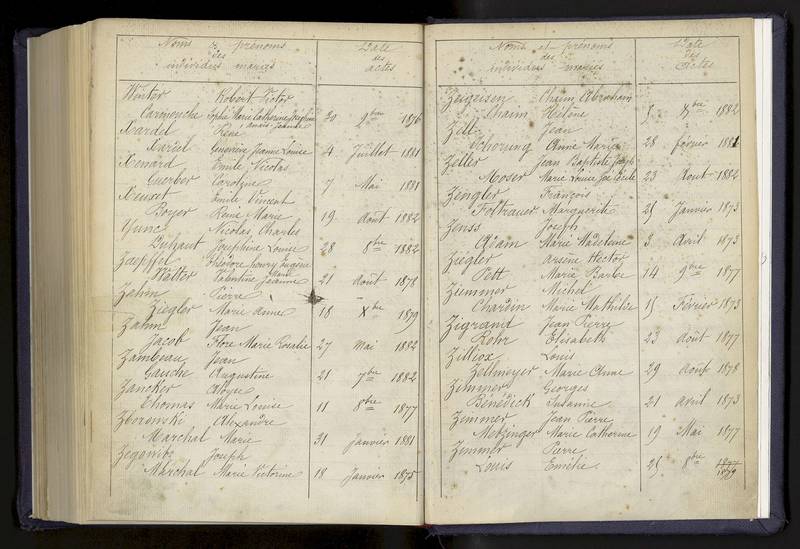 Noms & prénoms Date
des des
individus mariés actes
Winter Robert Victor
Carmouche Sophie Marie Catherine Joséphine 30 9bre 1876
Anaïs Jeanne
Xardel René
Xardel Geneviève Jeanne Louise 4 Juillet 1881
Xenard Emile Nicolas
Guerber Caroline 7 Mai 1881
Xeuxet Emile Vincent
Boyer Reine Marie 19 Août 1882
Yunc Nicolas Charles
Duhaut Joséphine Louise 28 8bre 1882
Zaepffel Théodore henry Eugène
Walter Valentine Jeanne Marie 21 Août 1878
Zahm Pierre
Ziegler Marie Anne 18 Xbre 1879
Zahm Jean
Jacob Flore Marie Rosalie 27 Mai 1882
Zambeau Jean
Gauche Augustine 21 7bre 1882
Zancker Aloyse
Thomas Marie Louise 11 8bre 1877
Zboronski Alexandre
Marchal Marie 31 janvier 1881
Joseph
Marchal Marie Victorine 18 Janvier 1875
Noms et prénoms Date
des des
individus mariés actes
Zeigeisen Chaim Abraham
Hélène 8 Xbre 1882
Zell Jean
Schorung Anne Marie 28 février 1881
Zeller Jean Baptiste Joseph
Moser Marie Louise José Cécile 23 Août 1882
Zengler François
Foltrauer Marguerite 25 Janvier 1873
Zenss Joseph
Adam Marie Madeleine 3 Avril 1873
Ziegler Arsène Hector
Pett Marie Barbe 14 9bre 1877
Ziemmer Michel
Chardin Marie Mathilde 15 Février 1873
Zigrand Jean Pierre
Rohr Elisabeth 23 Août 1877
Zilliox Louis
Zellmeyer Marie Anne 29 Août 1878
Zimmer Georges
Bénédick Susanne 21 avril 1873
Zimmer Jean Pierre
Metzinger Marie Catherine 19 Mai 1877
Zimmer Pierre
Louis Emélie 25 8bre 1877
1879